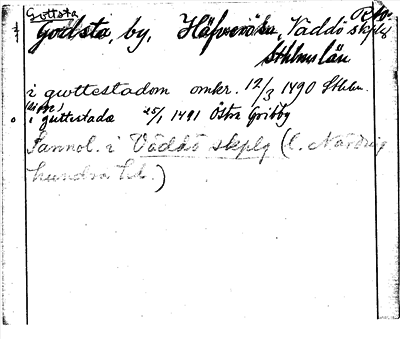 Guttsta
Godsta, by, Häfverö sn, Väddö skplg
Sthlms län
i gwttestadom omkr. 12/3 1490 Sthlm.
i guttestadæ 25/1 1491 Östra Gribby
Sannol. i Väddö skplg (l. Närdinghundra hd.)